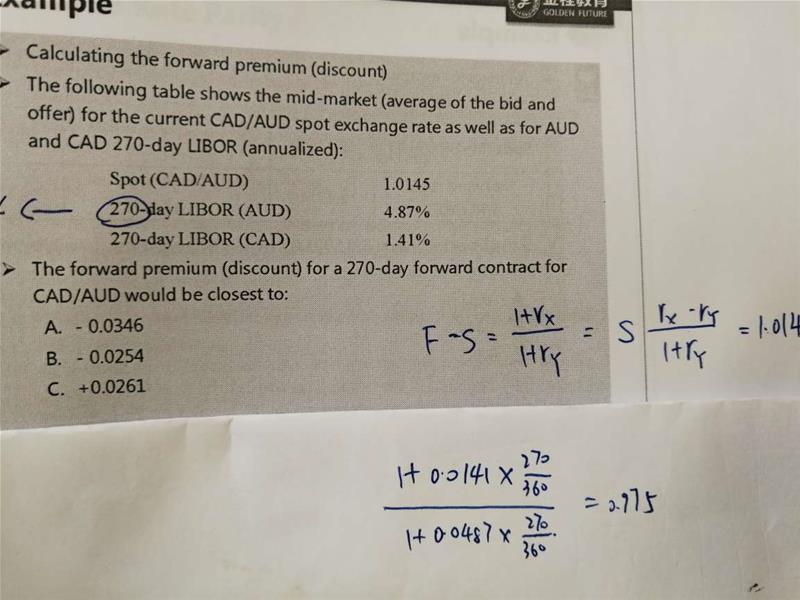 Example
金程教育
GOLDEN FUTURE
Calculating the forward premium (discount)
The following table shows the mid-market (average of the bid and
offer) for the current CAD/AUD spot exchange rate as well as for AUD
and CAD 270-day LIBOR (annualized):
Spot (CAD/AUD) 1.0145
270-day LIBOR (AUD) 4.87%
270-day LIBOR (CAD) 1.41%
The forward premium (discount) for a 270-day forward contract for
CAD/AUD would be closest to:
A. - 0.0346
B. - 0.0254
C. +0.0261
F - S = (1+rx)/(1+ry) = S (rx - ry)/(1+ry) = 1.014
(1 + 0.0141 × 270/360)/(1 + 0.0487 × 270/360) = 0.975